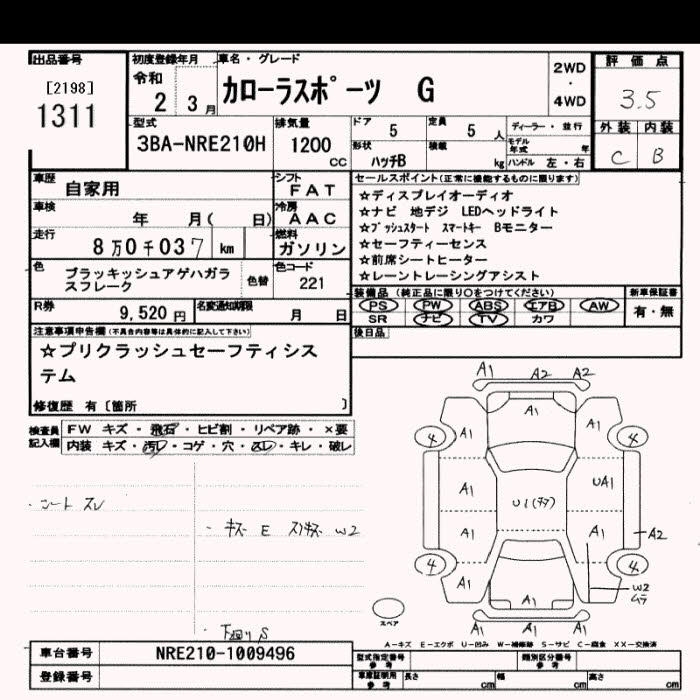 出品番号
[2198]
1311
初度登録年月
令和
2 3月
車名・グレード
カローラスポーツ G
2WD
・
4WD
評価点
3.5
外装 内装
C B
型式
3BA-NRE210H
排気量
1200
cc
ドア
5
定員
5 人
形状
ハッチB
積載
kg
ディーラー・並行
モデル年式 年
ハンドル 左・右
車歴
自家用
シフト
FAT
車検
年 月( 日)
冷房
AAC
走行
8万0千037 km
燃料
ガソリン
色
ブラッキッシュアゲハガラスフレーク
色替
色コード
221
R券
9,520 円
名変通知期限
月 日
セールスポイント(正常に機能するものに限ります)
☆ディスプレイオーディオ
☆ナビ 地デジ LEDヘッドライト
☆プッシュスタート スマートキー Bモニター
☆セーフティーセンス
☆前席シートヒーター
☆レーントレーシングアシスト
装備品(純正品に限り○をつけてください)
PS PW ABS エアB AW
SR ナビ TV カワ
新車保証書
有・無
後日品
注意事項申告欄(不具合内容等は具体的に記入して下さい)
☆プリクラッシュセーフティシス
テム
修復歴 有〔箇所 〕
検査員
記入欄
FW キズ・飛石・ヒビ割・リペア跡・×要
内装 キズ・汚レ・コゲ・穴・スレ・キレ・破レ
・シート スレ
・キズ E スリキズ W2
・下廻り S
A1 A2 A2
A1
A1 A1
4 4
A1 U1(チヂ) UA1
A1 A1 A2
4 4
A1 A1 W2
ムラ
A1 A1 A1
スペア
A-キズ E-エクボ U-凹み W-補修跡 S-サビ C-腐食 XX-交換済
車台番号
NRE210-1009496
登録番号
型式指定番号
参考
類別区分番号
参考
車庫証明用
参考
長さ cm
幅 cm
高さ cm